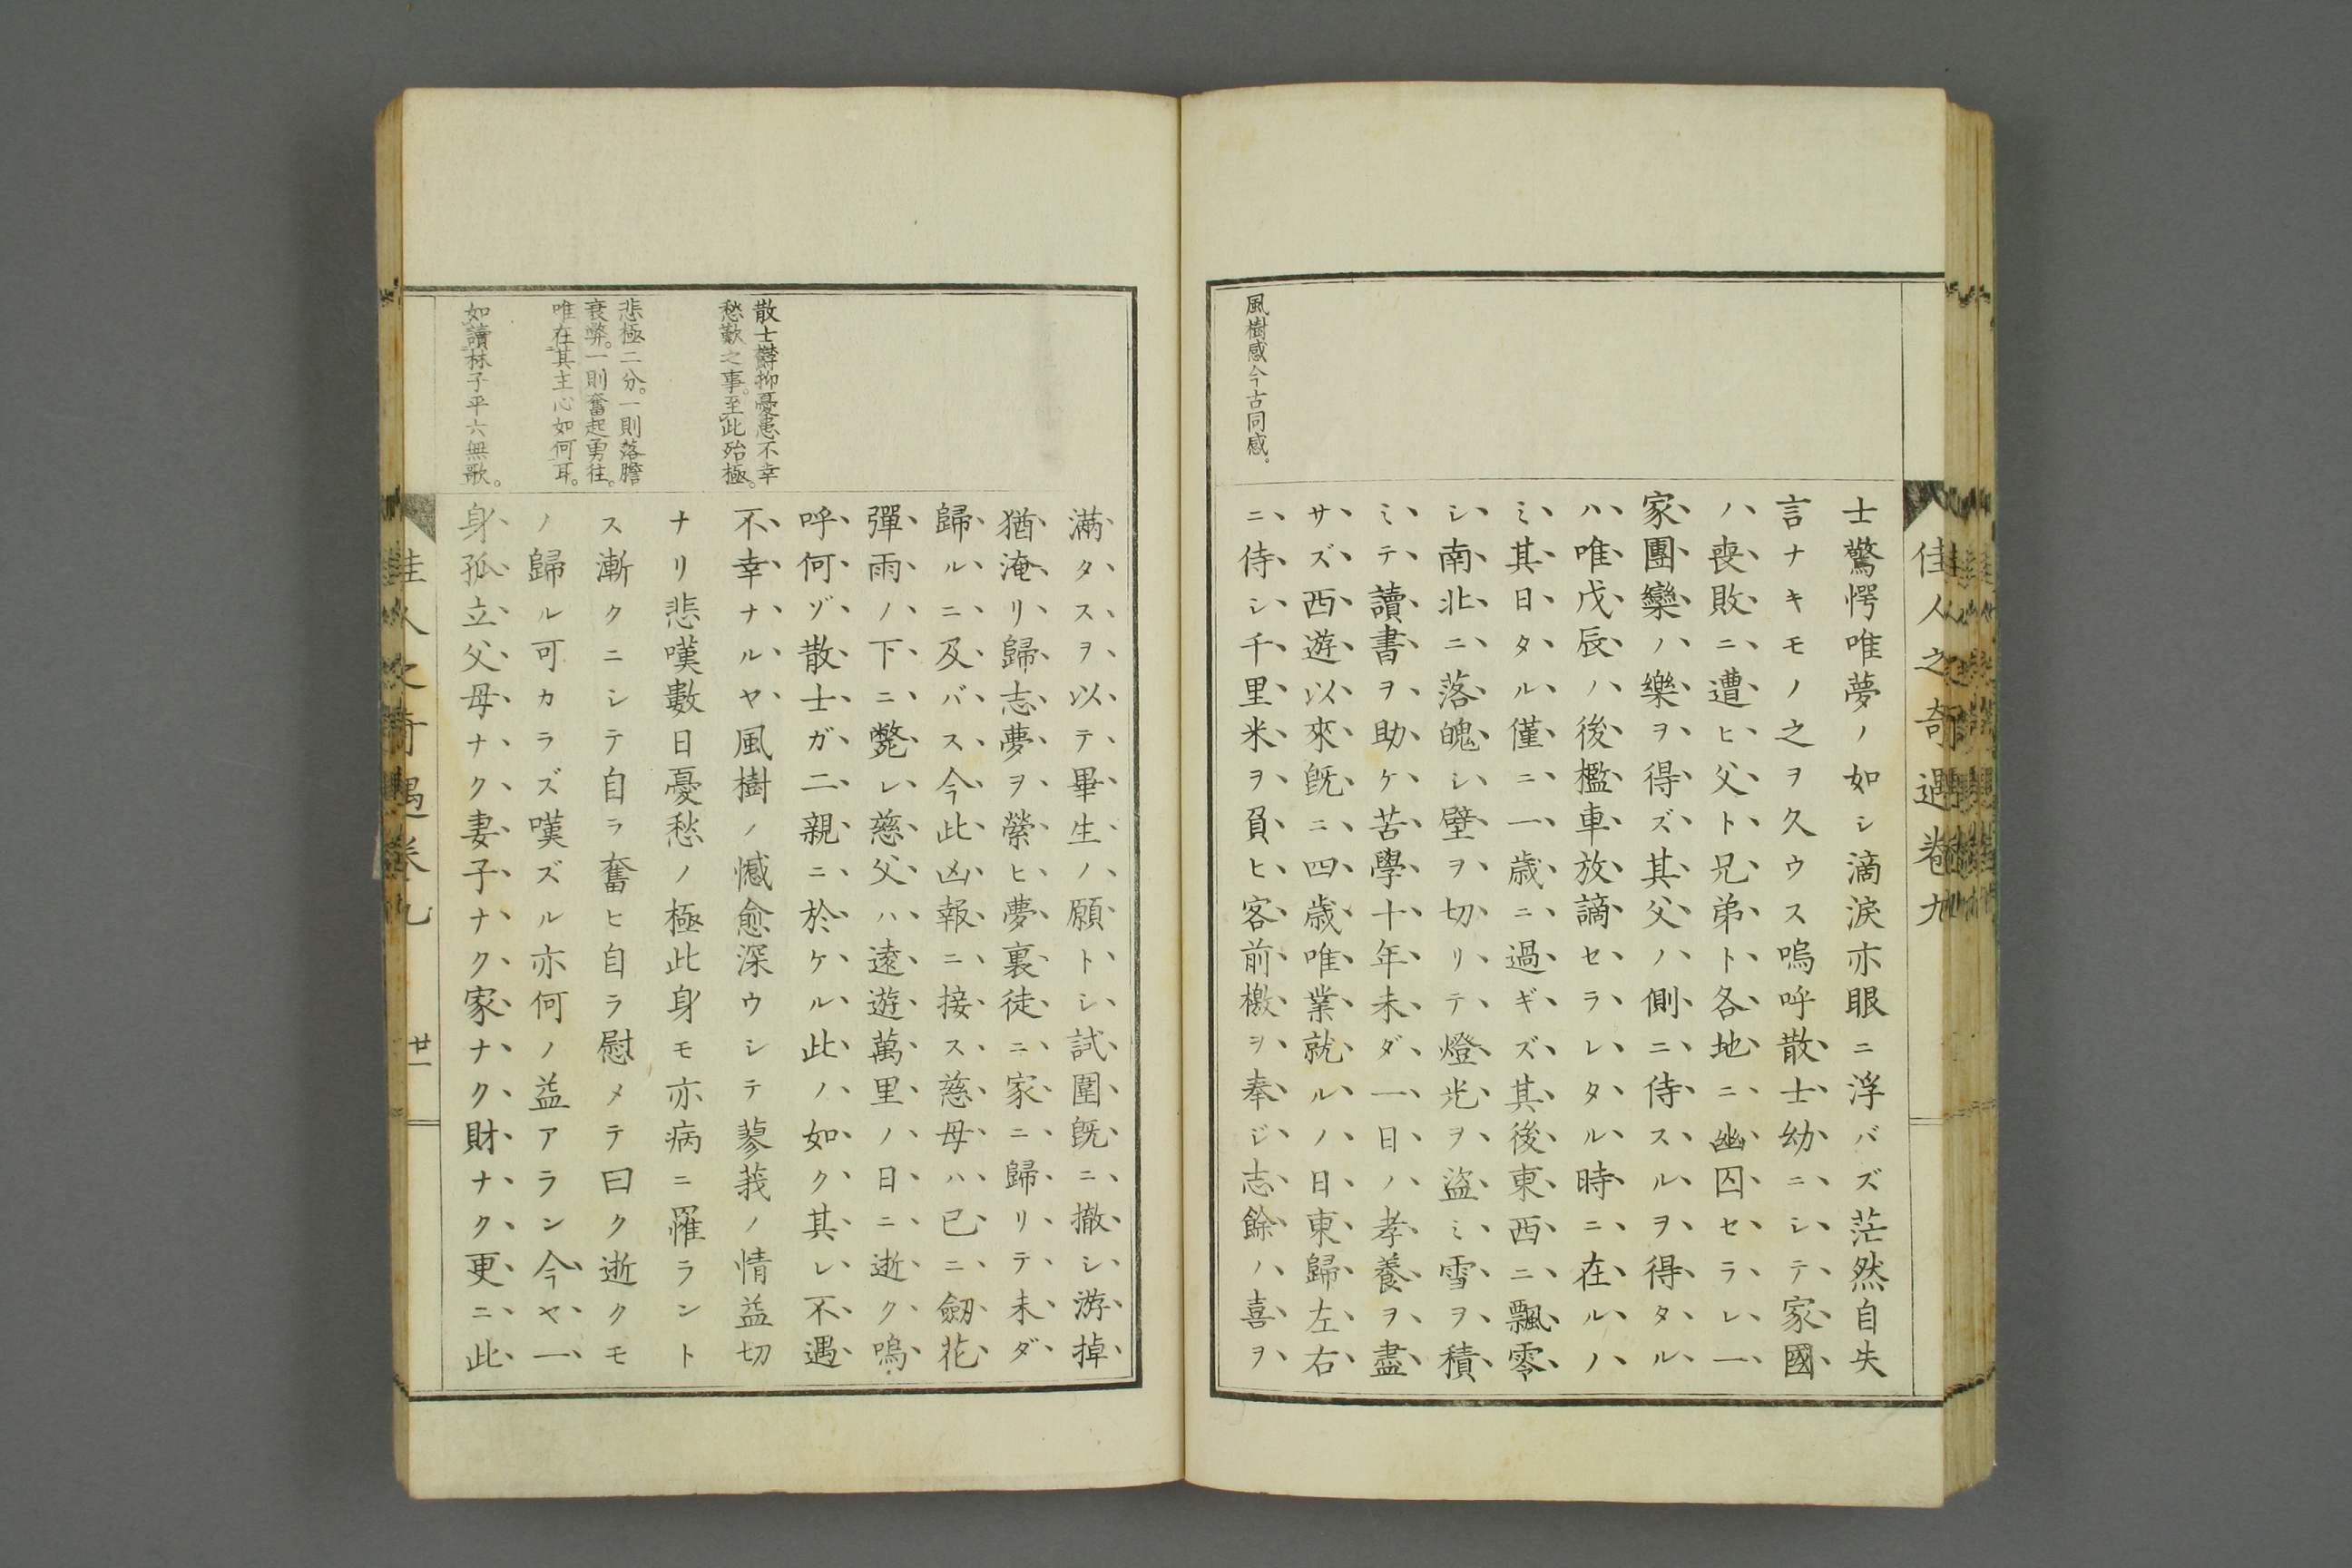 佳人之奇遇卷九
風樹感今古同感。
士驚愕唯夢ノ如シ滴淚亦眼ニ浮バズ茫然自失
言ナキモノ之ヲ久ウス嗚呼散士幼ニシテ家國
ノ喪敗ニ遭ヒ父ト兄弟ト各地ニ幽囚セラレ一
家團欒ノ樂ヲ得ズ其父ノ側ニ侍スルヲ得タル
ハ唯戊辰ノ後檻車放謫セラレタル時ニ在ルノ
ミ其日タル僅ニ一歲ニ過ギズ其後東西ニ飄零
シ南北ニ落魄シ壁ヲ切リテ燈光ヲ盜ミ雪ヲ積
ミテ讀書ヲ助ケ苦學十年未ダ一日ノ孝養ヲ盡
サズ西遊以來既ニ四歲唯業就ルノ日東歸左右
ニ侍シ千里米ヲ負ヒ客前檄ヲ奉ジ志餘ノ喜ヲ
散士鬱抑憂患不幸
愁歎之事。至此殆極。
悲極二分。一則落膽
衰弊。一則奮起勇往。
唯在其主心如何耳。
如讀林子平六無歌。
滿タスヲ以テ畢生ノ願トシ試圍既ニ撤シ游掉
猶淹リ歸志夢ヲ縈ヒ夢裏徒ニ家ニ歸リテ未ダ
歸ルニ及バス今此凶報ニ接ス慈母ハ已ニ劒花
彈雨ノ下ニ斃レ慈父ハ遠遊萬里ノ日ニ逝ク嗚
呼何ゾ散士ガ二親ニ於ケル此ノ如ク其レ不遇
不幸ナルヤ風樹ノ憾愈深ウシテ蓼莪ノ情益切
ナリ悲嘆數日憂愁ノ極此身モ亦病ニ罹ラント
ス漸クニシテ自ラ奮ヒ自ラ慰メテ曰ク逝クモ
ノ歸ル可カラズ嘆ズル亦何ノ益アラン今ヤ一
身孤立父母ナク妻子ナク家ナク財ナク更ニ此
佳人之奇遇卷九
廿一